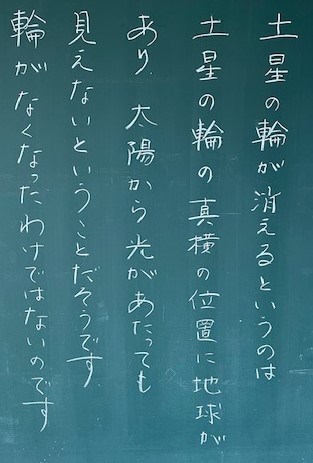 土星の輪が消えるというのは
土星の輪の真横の位置に地球が
あり、太陽から光があたっても
見えないということだそうです。
輪がなくなったわけではないのです